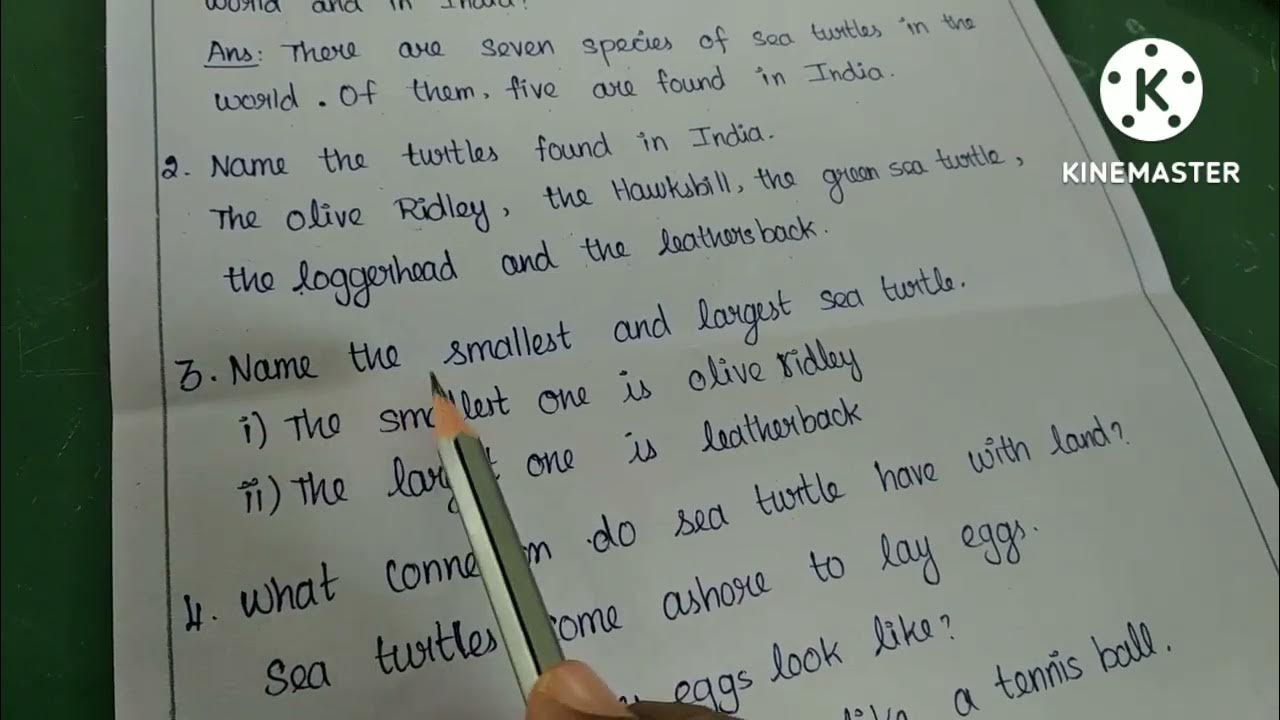 world and in India?
Ans: There are seven species of sea turtles in the
world. Of them, five are found in India.
2. Name the turtles found in India.
The Olive Ridley, the Hawksbill, the green sea turtle,
the loggerhead and the leathersback.
3. Name the smallest and largest sea turtle.
i) The smallest one is olive ridley
ii) The largest one is leatherback
4. What do sea turtle have with land?
Sea turtles come ashore to lay eggs.
eggs look like?
like a tennis ball.
K
KINEMASTER